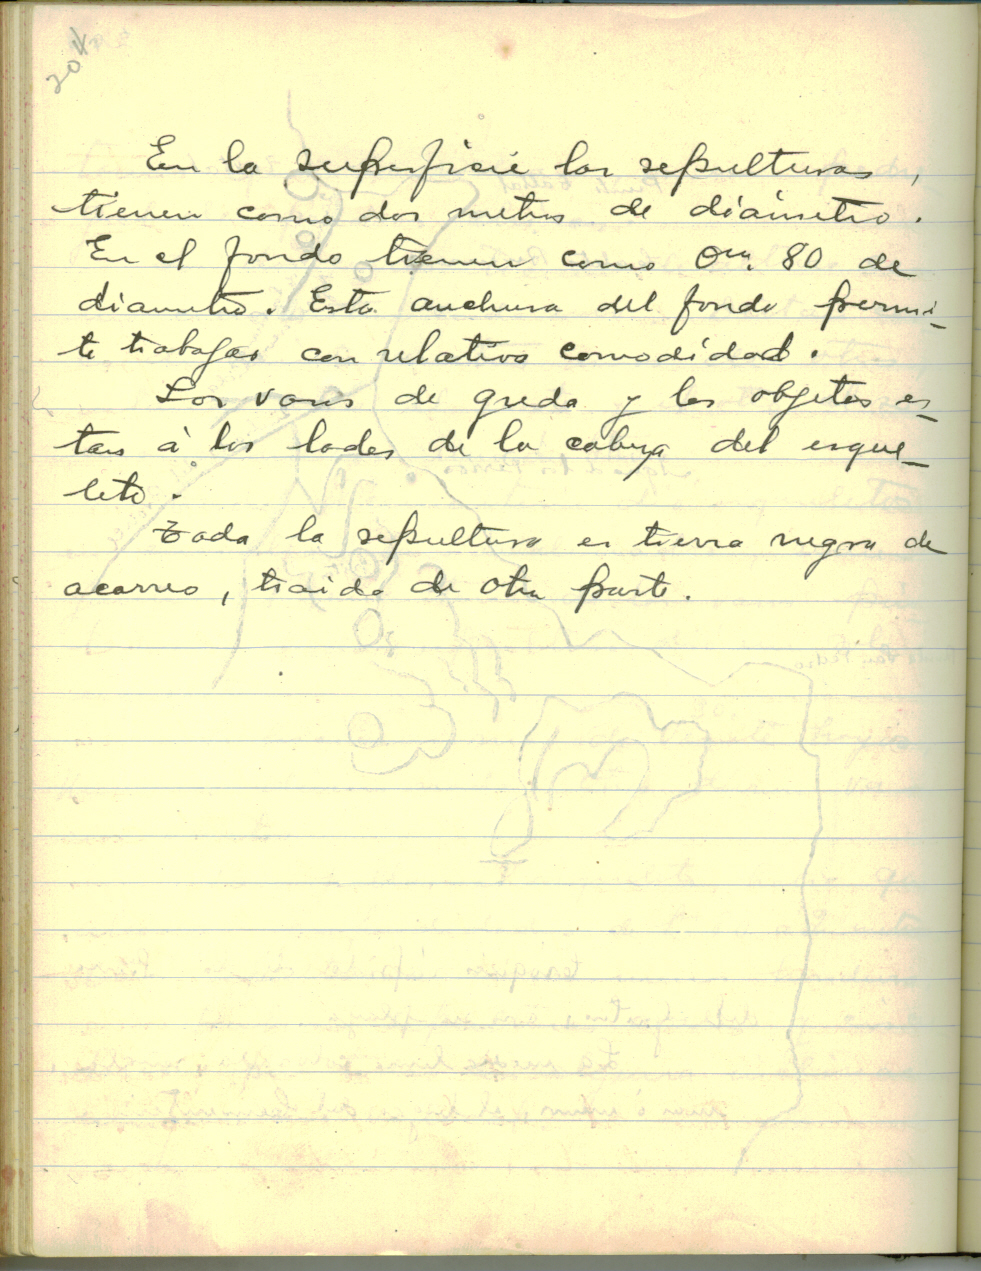 204
En la superficie las sepulturas,
tienen como dos metros de diámetro.
En el fondo tienen como 0m. 80 de
diametro. Esta anchura del fondo permi-
te trabajar con relativa comodidad.
Los vasos de greda y los objetos es-
tan á los lados de la cabeza del esque-
leto.
Toda la sepultura es tierra negra de
acarreo, traida de otra parte.